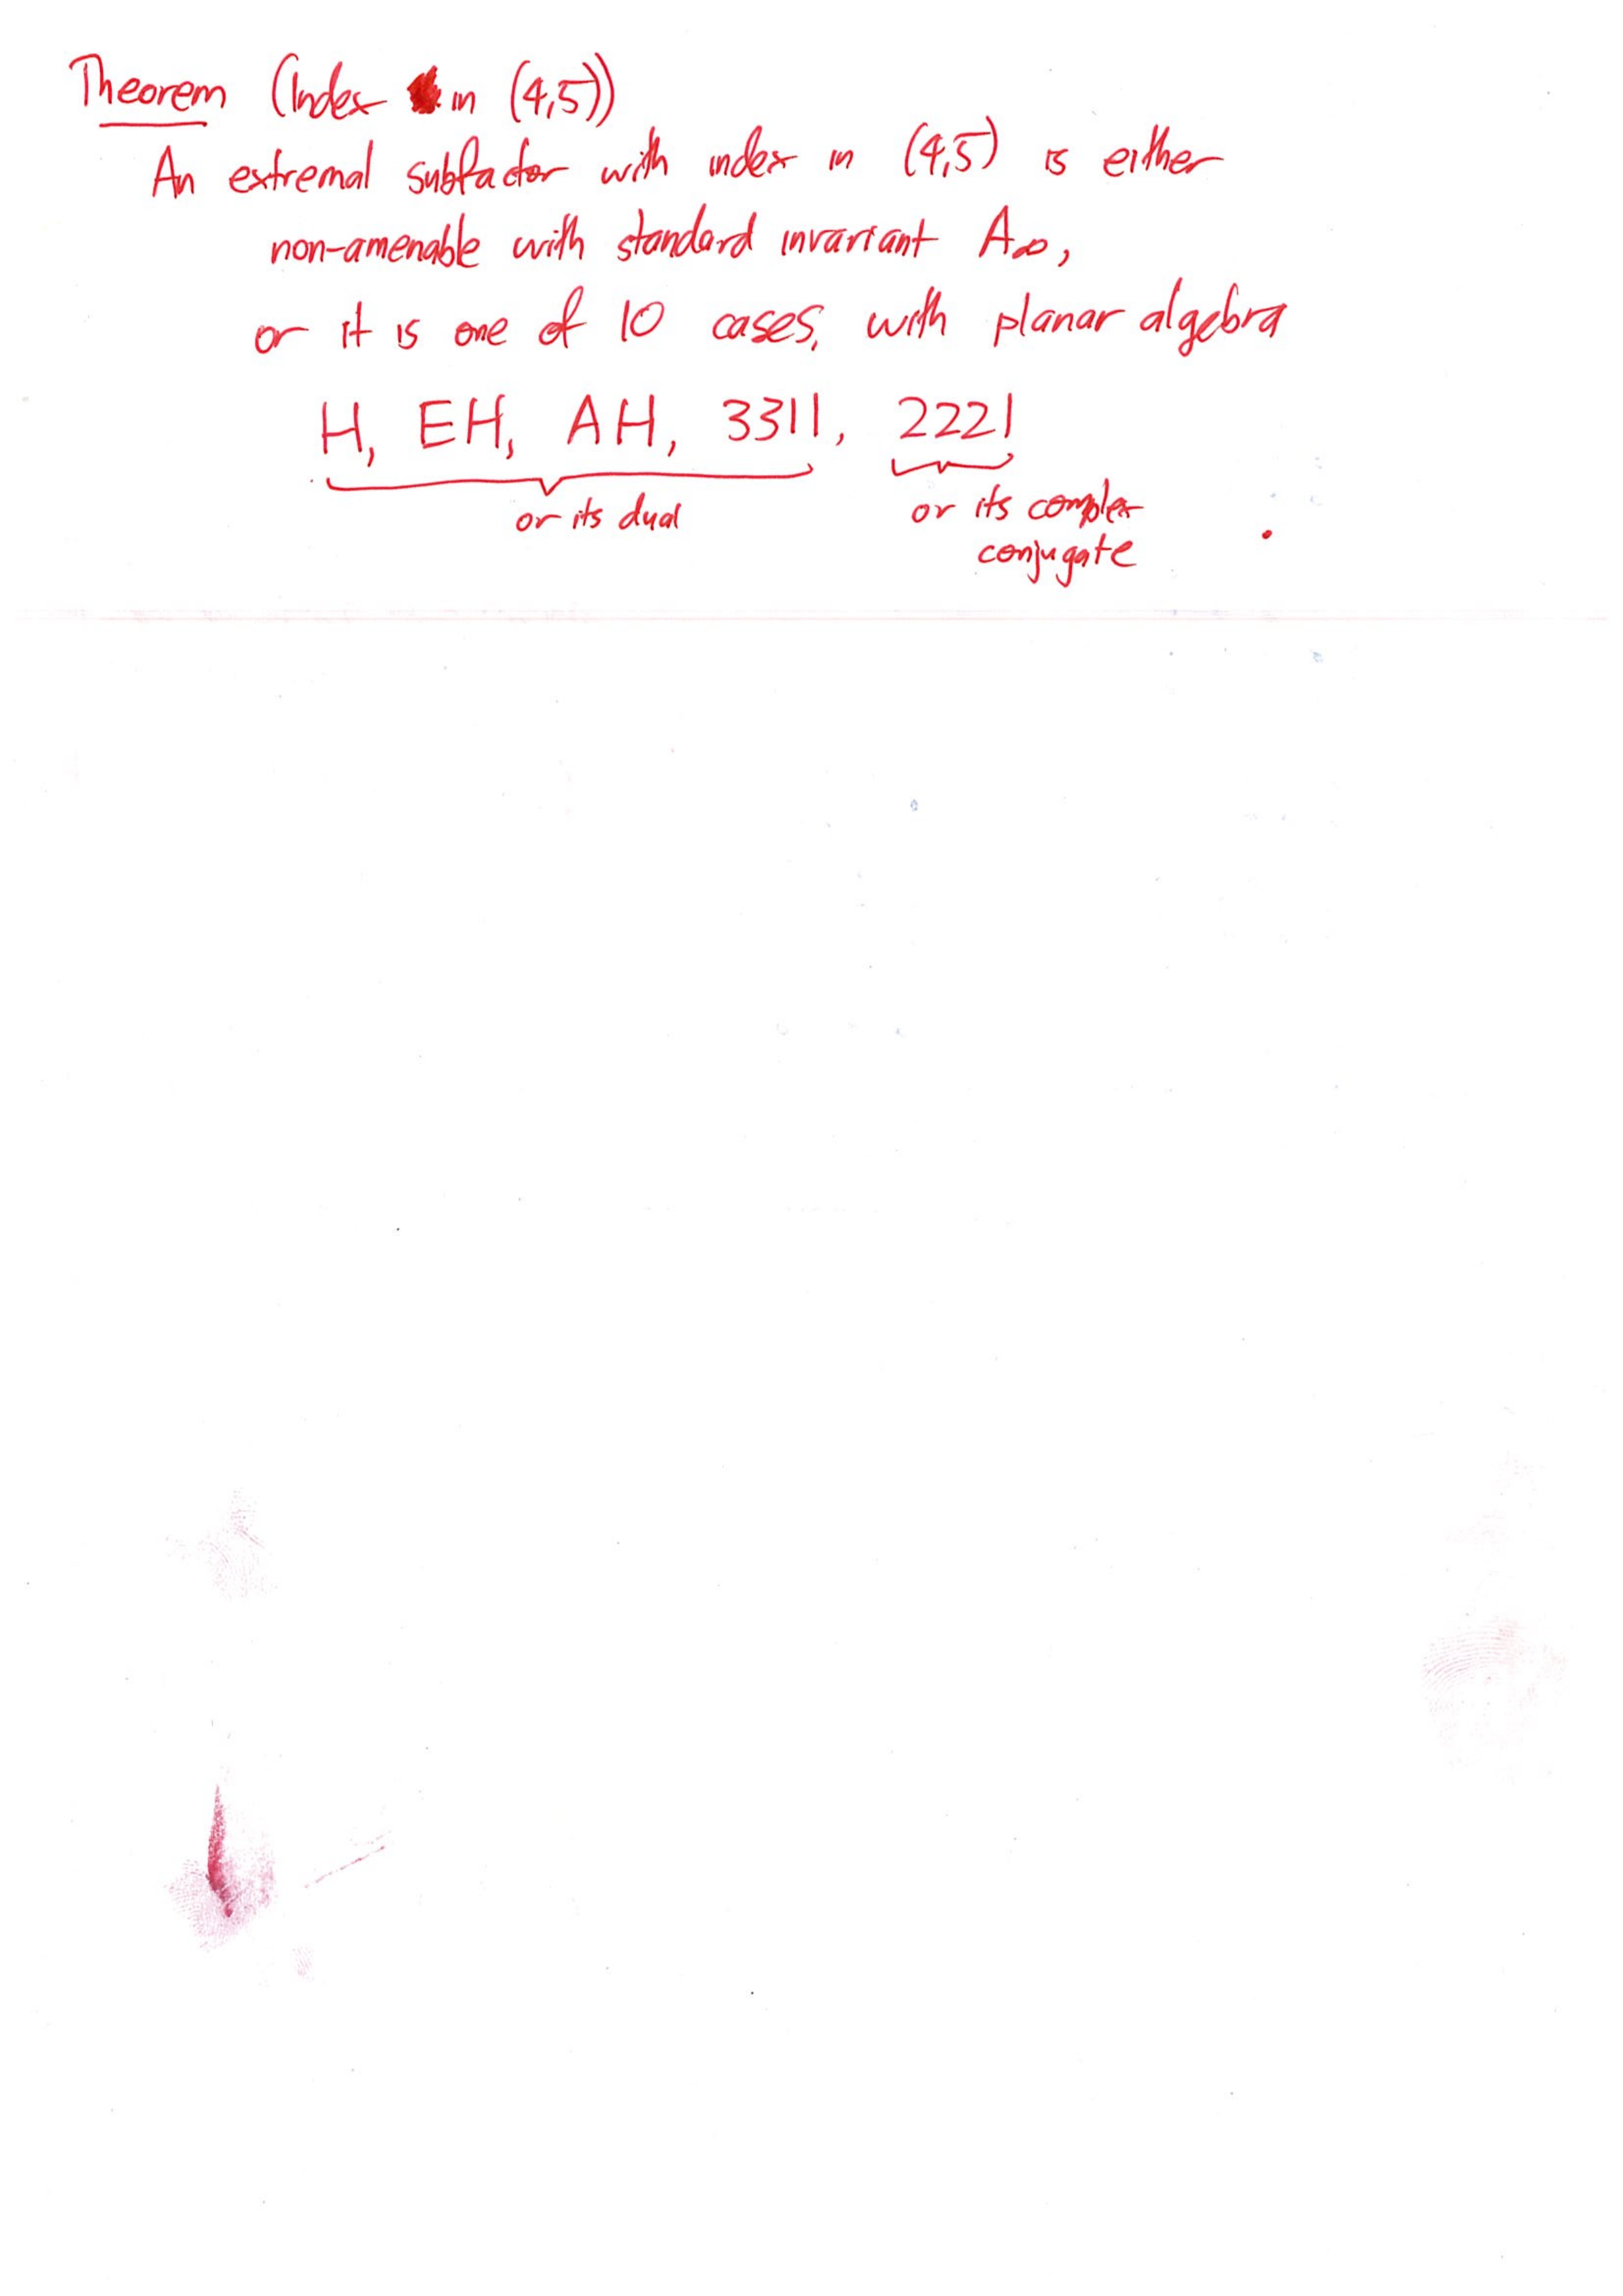 Theorem (Index in (4,5))
An extremal subfactor with index in (4,5) is either
non-amenable with standard invariant A∞,
or it is one of 10 cases, with planar algebra
H, EH, AH, 3311, 2221
or its dual or its complex
conjugate .